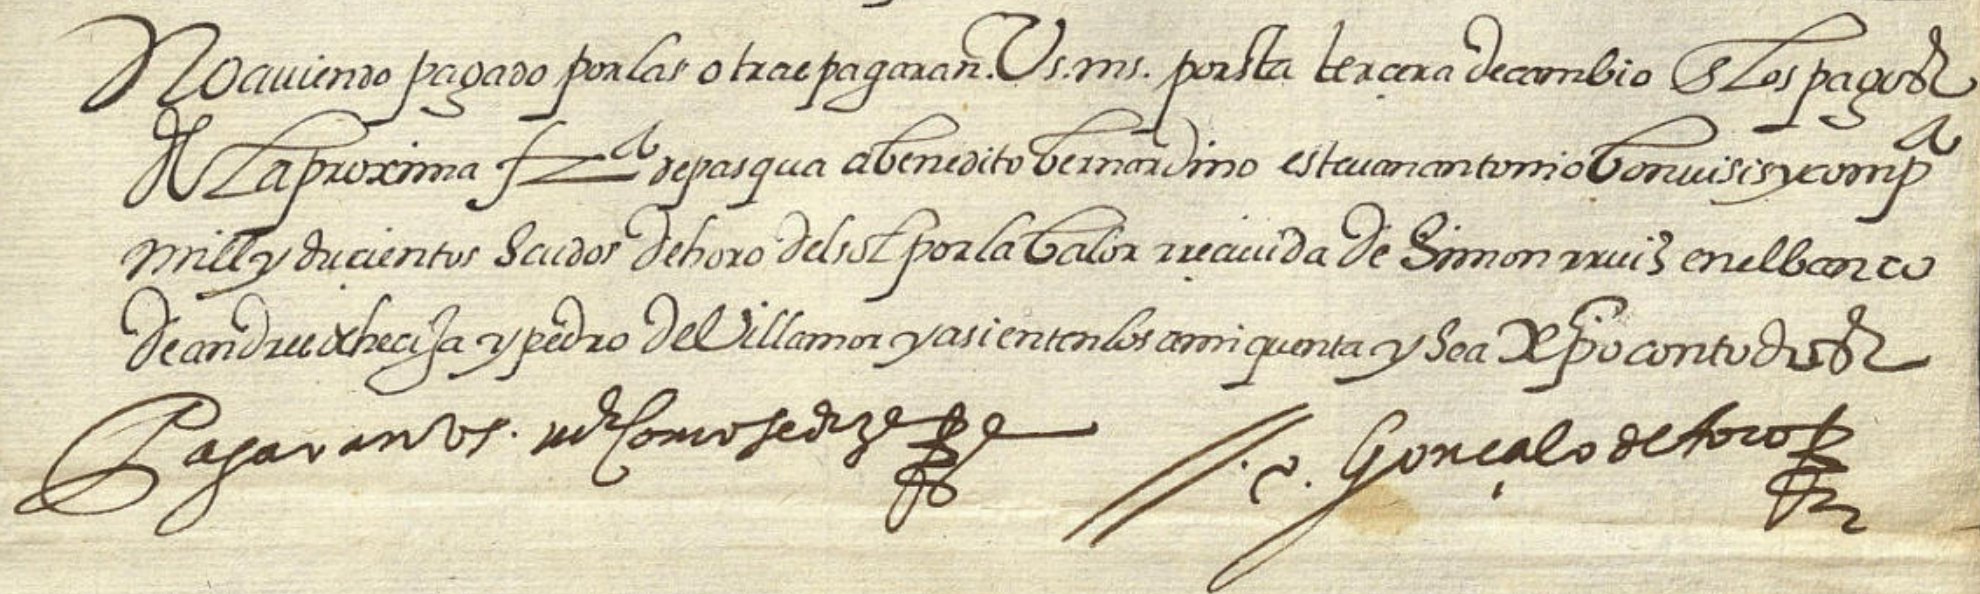 No aviendo pagado por las otras pagaran. Vs. ms. por sta tercera de cambio En Los pagos
de La proxima fra de pasqua a benedito bernardino estevan antonio bonvisis y compa
mill y ducientos Scudos de horo del sol por la Valor rreçiuida de Simon rruiz en el banco
de andres de heçija y pedro de Villamor y asientenlos a mi quenta y Sea Xpo con todos
Pagaran vs. mds Como se dize
Gonçalo de horo